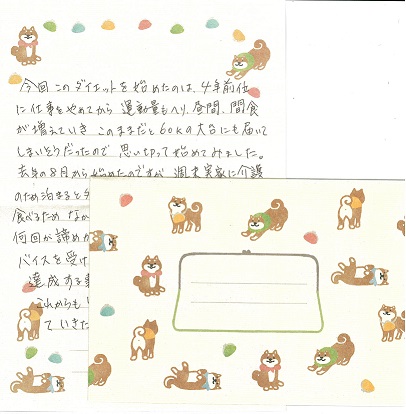 今回このダイエットを始めたのは、4年前位
に仕事をやめてから 運動量もへり、昼間、間食
が増えていき このままだと60kg大台にも届いて
しまいそうだったので 思い切って始めてみました。
去年の8月から始めたのですが 週末実家に介護
のため泊まると
食べるため なか
何回か諦めか
バイスを受け
達成する事
これからも
ていきた